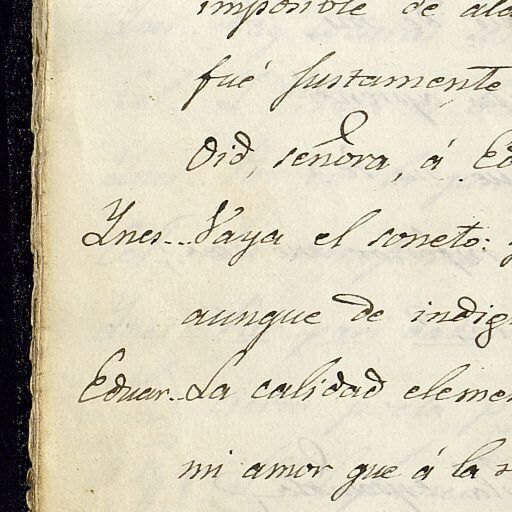 imposible de ala
fué justamente
Oid, señora, á Ed
Ynes.. Vaya el soneto:
aunque de indig
Eduar.. La calidad elemen
mi amor que á la s